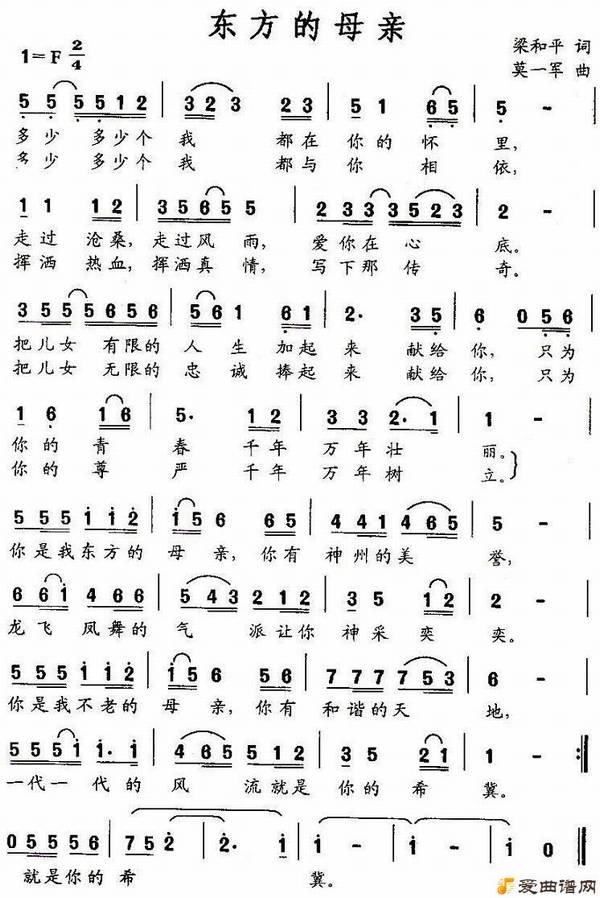 东方的母亲
1=F 2/4
梁和平 词
莫一军 曲
5 5 5 5 1 2 | 3 2 3 2 3 | 5 1 6 5 | 5 - |
多少 多少个 我 都在 你的怀 里,
多少 多少个 我 都与 你 相 依,
1 1 1 2 | 3 5 6 5 5 | 2 3 3 3 5 2 3 | 5 - |
走过 沧桑, 走过风 雨, 爱你在 心 底。
挥洒 热血, 挥洒真 情, 写下那 传 奇。
3 5 5 5 5 6 5 6 | 5 1 6 1 | 2· 3 5 | 6 0 5 6 |
把儿女 有限的 人 生 加起 来 献给 你, 只为
把儿女 无限的 忠 诚 捧起 来 献给 你, 只为
1 6 1 6 | 5· 1 2 | 3 3 2· 1 | 1 - |
你的 青 春 千年 万年壮 丽。
你的 尊 严 千年 万年树 立。
5 5 5 1 1 2 | 1 5 6 6 5 | 4 4 1 4 6 5 | 5 - |
你是我东方的 母 亲, 你有 神州的美 誉,
6 6 1 4 6 6 | 5 4 3 2 1 2 | 3 5 1 2 | 2 - |
龙飞 凤舞的 气 派让你 神采 奕 奕。
5 5 5 1 1 2 | 1 5 6 6 5 | 7 7 7 7 5 | 6 - |
你是我不老的 母 亲, 你有 和谐的天 地,
5 5 5 1 1· 1 | 4 6 5 1 2 1 | 3 5 2 1 | 1 - :‖
一代一 代的 风 流就是 你的 希 冀。
0 5 5 5 5 6 | 7 5 2 | 2· 1 | 1 - | 1 - | 1 0 ‖
就是你的 希 冀。
爱曲谱网